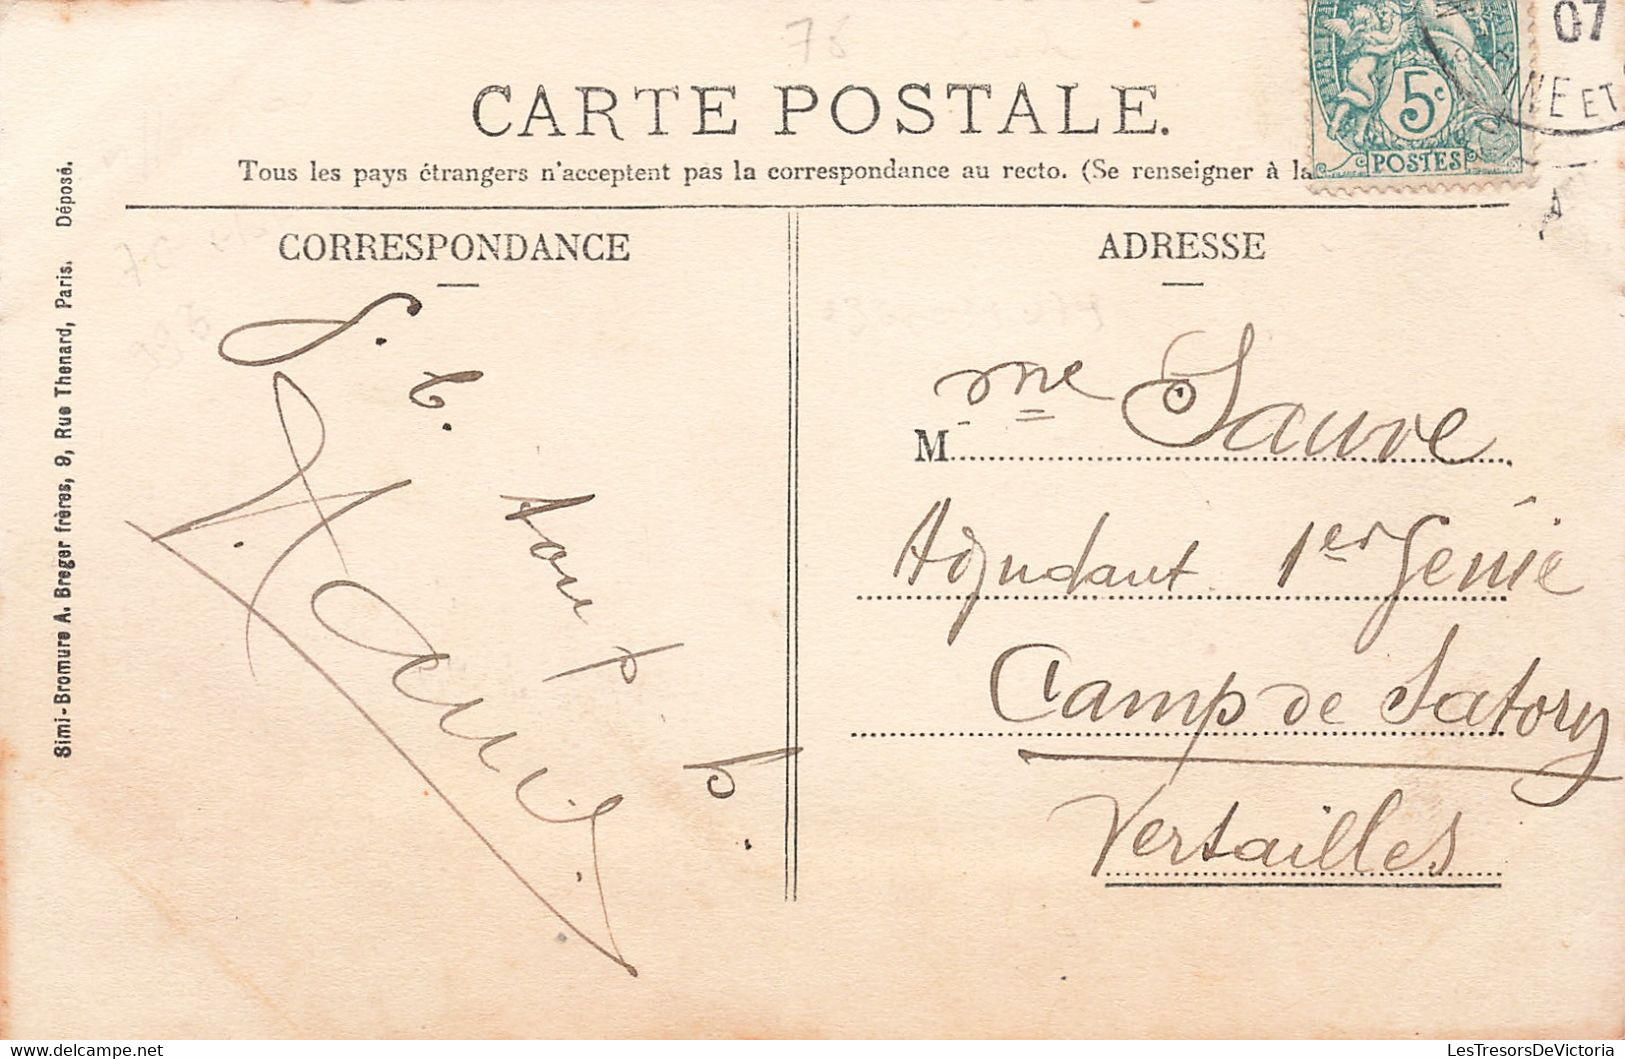 78
CARTE POSTALE.
Tous les pays étrangers n'acceptent pas la correspondance au recto. (Se renseigner à la
5c
POSTES
07
NE ET
CORRESPONDANCE
ADRESSE
Simi-Bromure A. Breger frères, 9, Rue Thenard, Paris. Déposé.
Mme Sauve
Adjudant 1er Génie
Camp de Satory
Versailles
LesTresorsDeVictoria